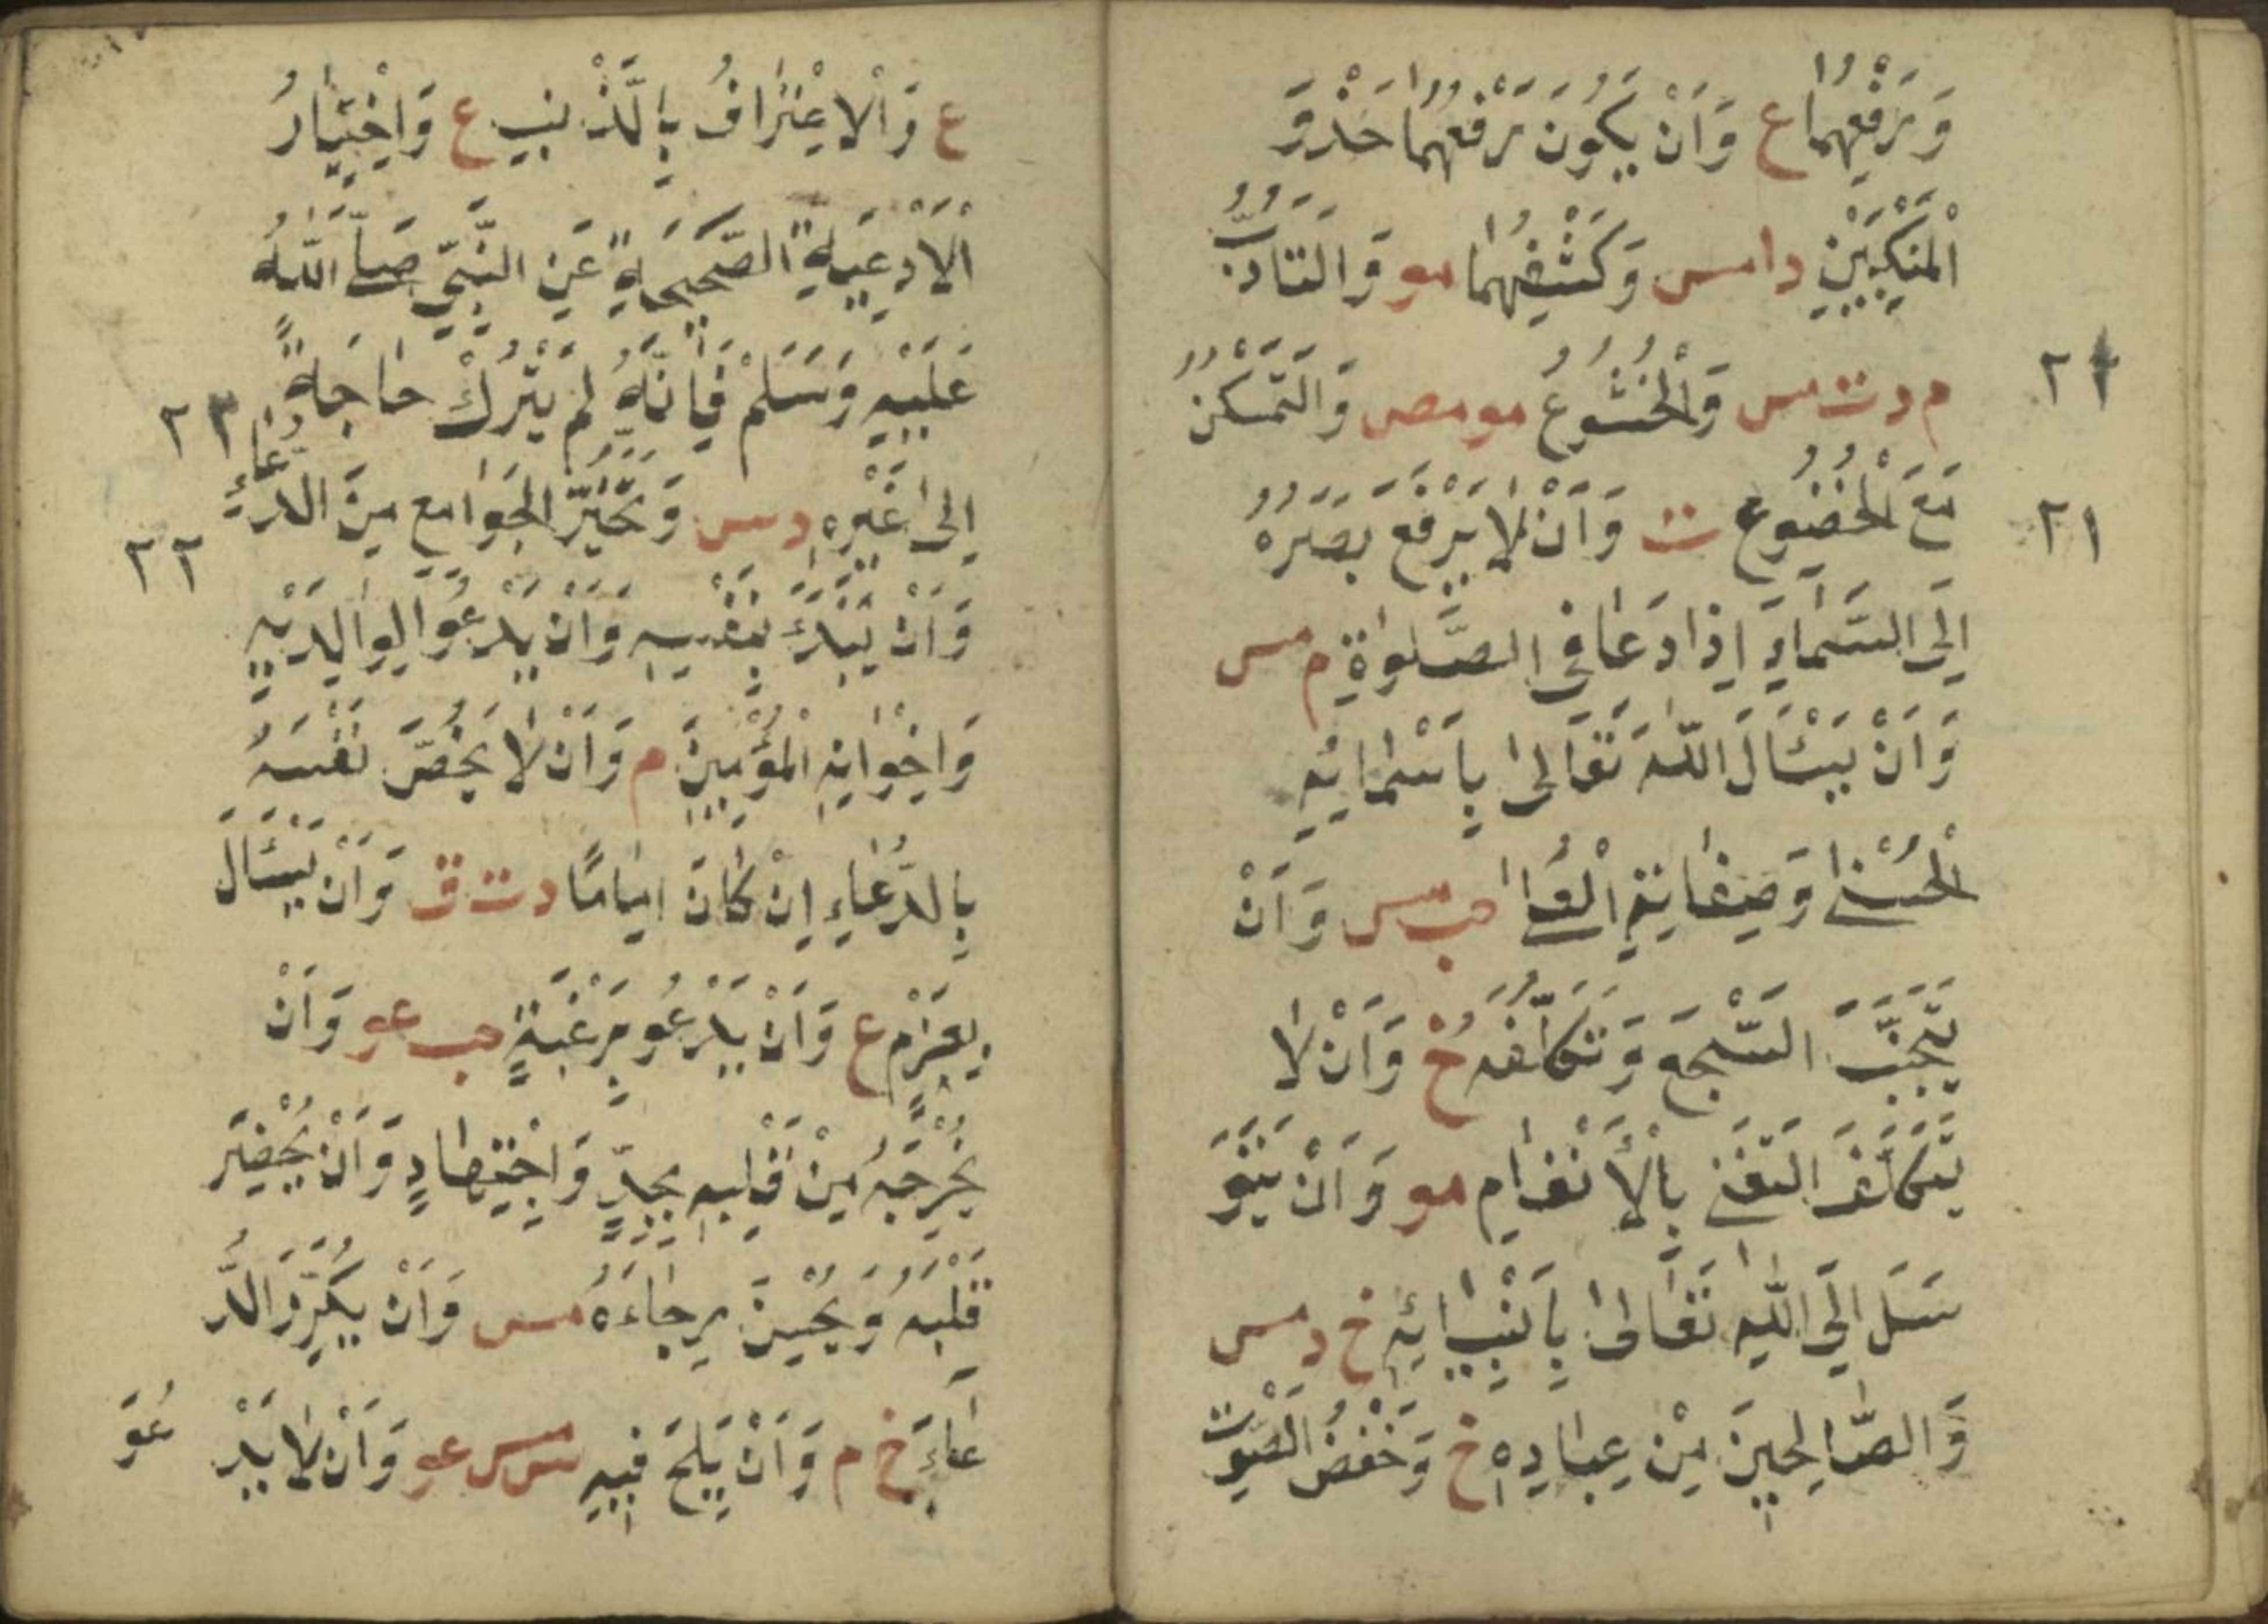 وَرَفْعُهُمَا ع وَاَنْ يَكُونَ رَفْعُهُمَا حَذْوَ
الْمَنْكِبَيْنِ د ا مس وَكَشْفُهُمَا مو وَالتَّاَدُّبُ
م د ت س وَالْخُشُوعُ مو مص وَالتَّمَسْكُنُ
٢٢
مَعَ الْخُضُوعِ ت وَاَنْ لَا يَرْفَعَ بَصَرَهُ
٢١
اِلَى السَّمَاءِ اِذَا دَعَا فِي الصَّلٰوةِ م مس
وَاَنْ يَسْئَالَ اللّٰهَ تَعَالٰى بِاَسْمَائِهِ
الْحُسْنٰى وَصِفَاتِهِ الْعُلٰى حب مس وَاَنْ
يَتَجَنَّبَ السَّجْعَ وَتَكَلُّفَهُ خ وَاَنْ لَا
يَتَكَلَّفَ التَّغَنِّي بِالْاَنْغَامِ مو وَاَنْ يَتَوَ
سَّلَ اِلَى اللّٰهِ تَعَالٰى بِاَنْبِيَائِهِ خ د مس
وَالصَّالِحِينَ مِنْ عِبَادِهِ خ وَخَفْضُ الصَّوْتِ
ع وَالْاِعْتِرَافُ بِالذَّنْبِ ع وَاخْتِيَارُ
الْاَدْعِيَةِ الصَّحِيحَةِ عَنِ النَّبِيِّ صَلَّى اللّٰهُ
عَلَيْهِ وَسَلَّمْ فَاِنَّهُ لَمْ يَتْرُكْ حَاجَةً
٢٣
اِلٰى غَيْرِهِ د س وَتَخَيُّرُ الْجَوَامِعِ مِنَ الدُّعَاءِ
٢٢
وَاَنْ يَبْدَأَ بِنَفْسِهِ وَاَنْ يَدْعُوَا لِوَالِدَيْهِ
وَاِخْوَانِهِ الْمُؤْمِنِينَ م وَاَنْ لَا يَخُصَّ نَفْسَهُ
بِالدُّعَاءِ اِنْ كَانَ اِمَامًا د ت ق وَاَنْ يَسْئَالَ
بِعَزْمٍ ع وَاَنْ يَدْعُوَ بِرَغْبَةٍ حب عو وَاَنْ
يُخْرِجَهُ مِنْ قَلْبِهِ بِجِدٍّ وَاجْتِهَادٍ وَاَنْ يُحْضِرَ
قَلْبَهُ وَيُحْسِنَ رِجَاءَهُ مس وَاَنْ يُكَرِّرَ الدُّ
عَاءَ خ م وَاَنْ يُلِحَّ فِيهِ س مس عو وَاَنْ لَا يَدْ
عُوَ